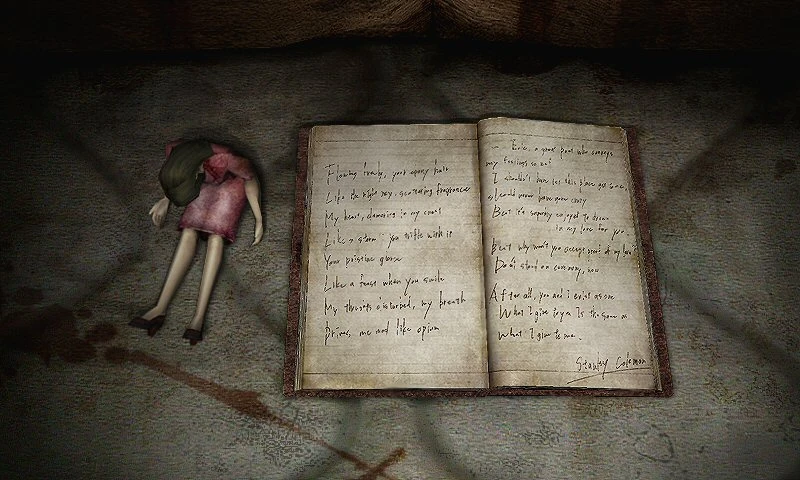 Flowing freely, your ebony hair
Like the night sky, scattering fragrance
My heart, dancing in my chest
Like a storm you trifle with it
Your piercing glance
Like a feast when you smile
My throat's, my breath
Drives me mad like opium
- Ever, a great poet who conveys
my feelings so
I wouldn't have let this place get to me,
I could never have gone crazy
But it's superbly enjoyed to drown
in my love for you.
But why won't you accept proof of my love?
Don't stand on ceremony, now
After all, you and i exist as one
What I give to you Is the same as
what I give to me.
Stanley Coleman